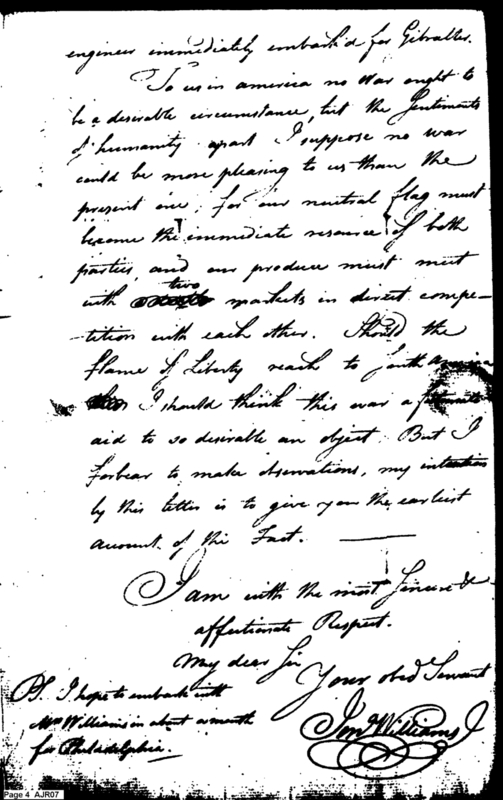 engineer immediately embark'd for Gibralter.
To us in america no War ought to
be a desirable circumstance, but the Sentiments
of humanity apart I suppose no war
could be more pleasing to us than the
present one; for our neutral flag must
become the immediate resource of both
parties, and our produce must meet
with two markets in direct compe-
tition with each other. Should the
flame of Liberty reach to South America
I should think this war a fortunate
aid to so desirable an object. But I
forbear to make observations, my intention
by this letter is to give you the earliest
account of the Fact.
I am with the most Sincere &
affectionate Respect.
My dear Sir
Your obed Servant
Jon Williams J
PS. I hope to embark with
Mrs Williams in about a month
for Philadelphia.
Page 4 AJR07